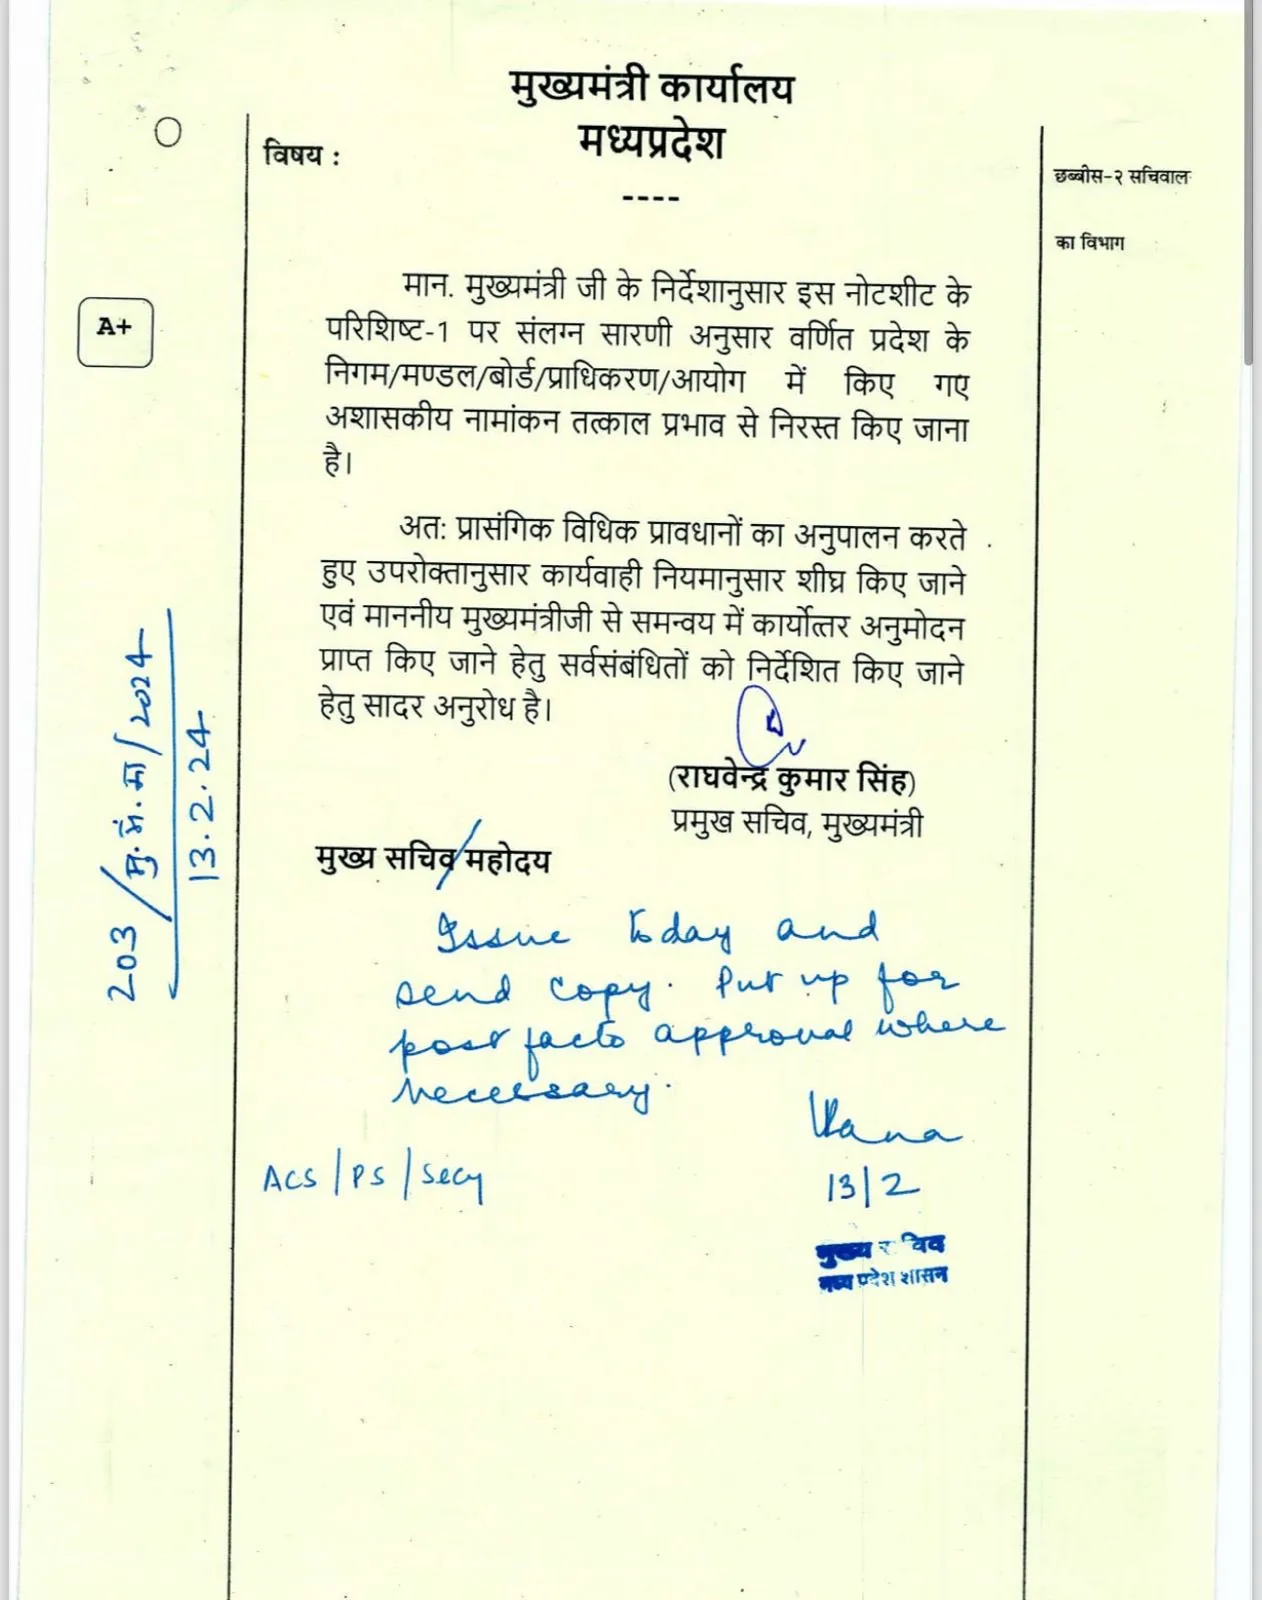 मुख्यमंत्री कार्यालय
मध्यप्रदेश
विषय :
----
छब्बीस-२ सचिवाल
का विभाग
A+
मान. मुख्यमंत्री जी के निर्देशानुसार इस नोटशीट के
परिशिष्ट-1 पर संलग्न सारणी अनुसार वर्णित प्रदेश के
निगम/मण्डल/बोर्ड/प्राधिकरण/आयोग में किए गए
अशासकीय नामांकन तत्काल प्रभाव से निरस्त किए जाना
है।
अत: प्रासंगिक विधिक प्रावधानों का अनुपालन करते
हुए उपरोक्तानुसार कार्यवाही नियमानुसार शीघ्र किए जाने
एवं माननीय मुख्यमंत्रीजी से समन्वय में कार्योत्तर अनुमोदन
प्राप्त किए जाने हेतु सर्वसंबंधितों को निर्देशित किए जाने
हेतु सादर अनुरोध है।
(राघवेन्द्र कुमार सिंह)
प्रमुख सचिव, मुख्यमंत्री
मुख्य सचिव महोदय
203/मु.मं.मा/2024
13.2.24
Issue today and
send copy. Put up for
post facto approval where
necessary.
13/2
ACS/PS/Secy
मुख्य सचिव
मध्य प्रदेश शासन